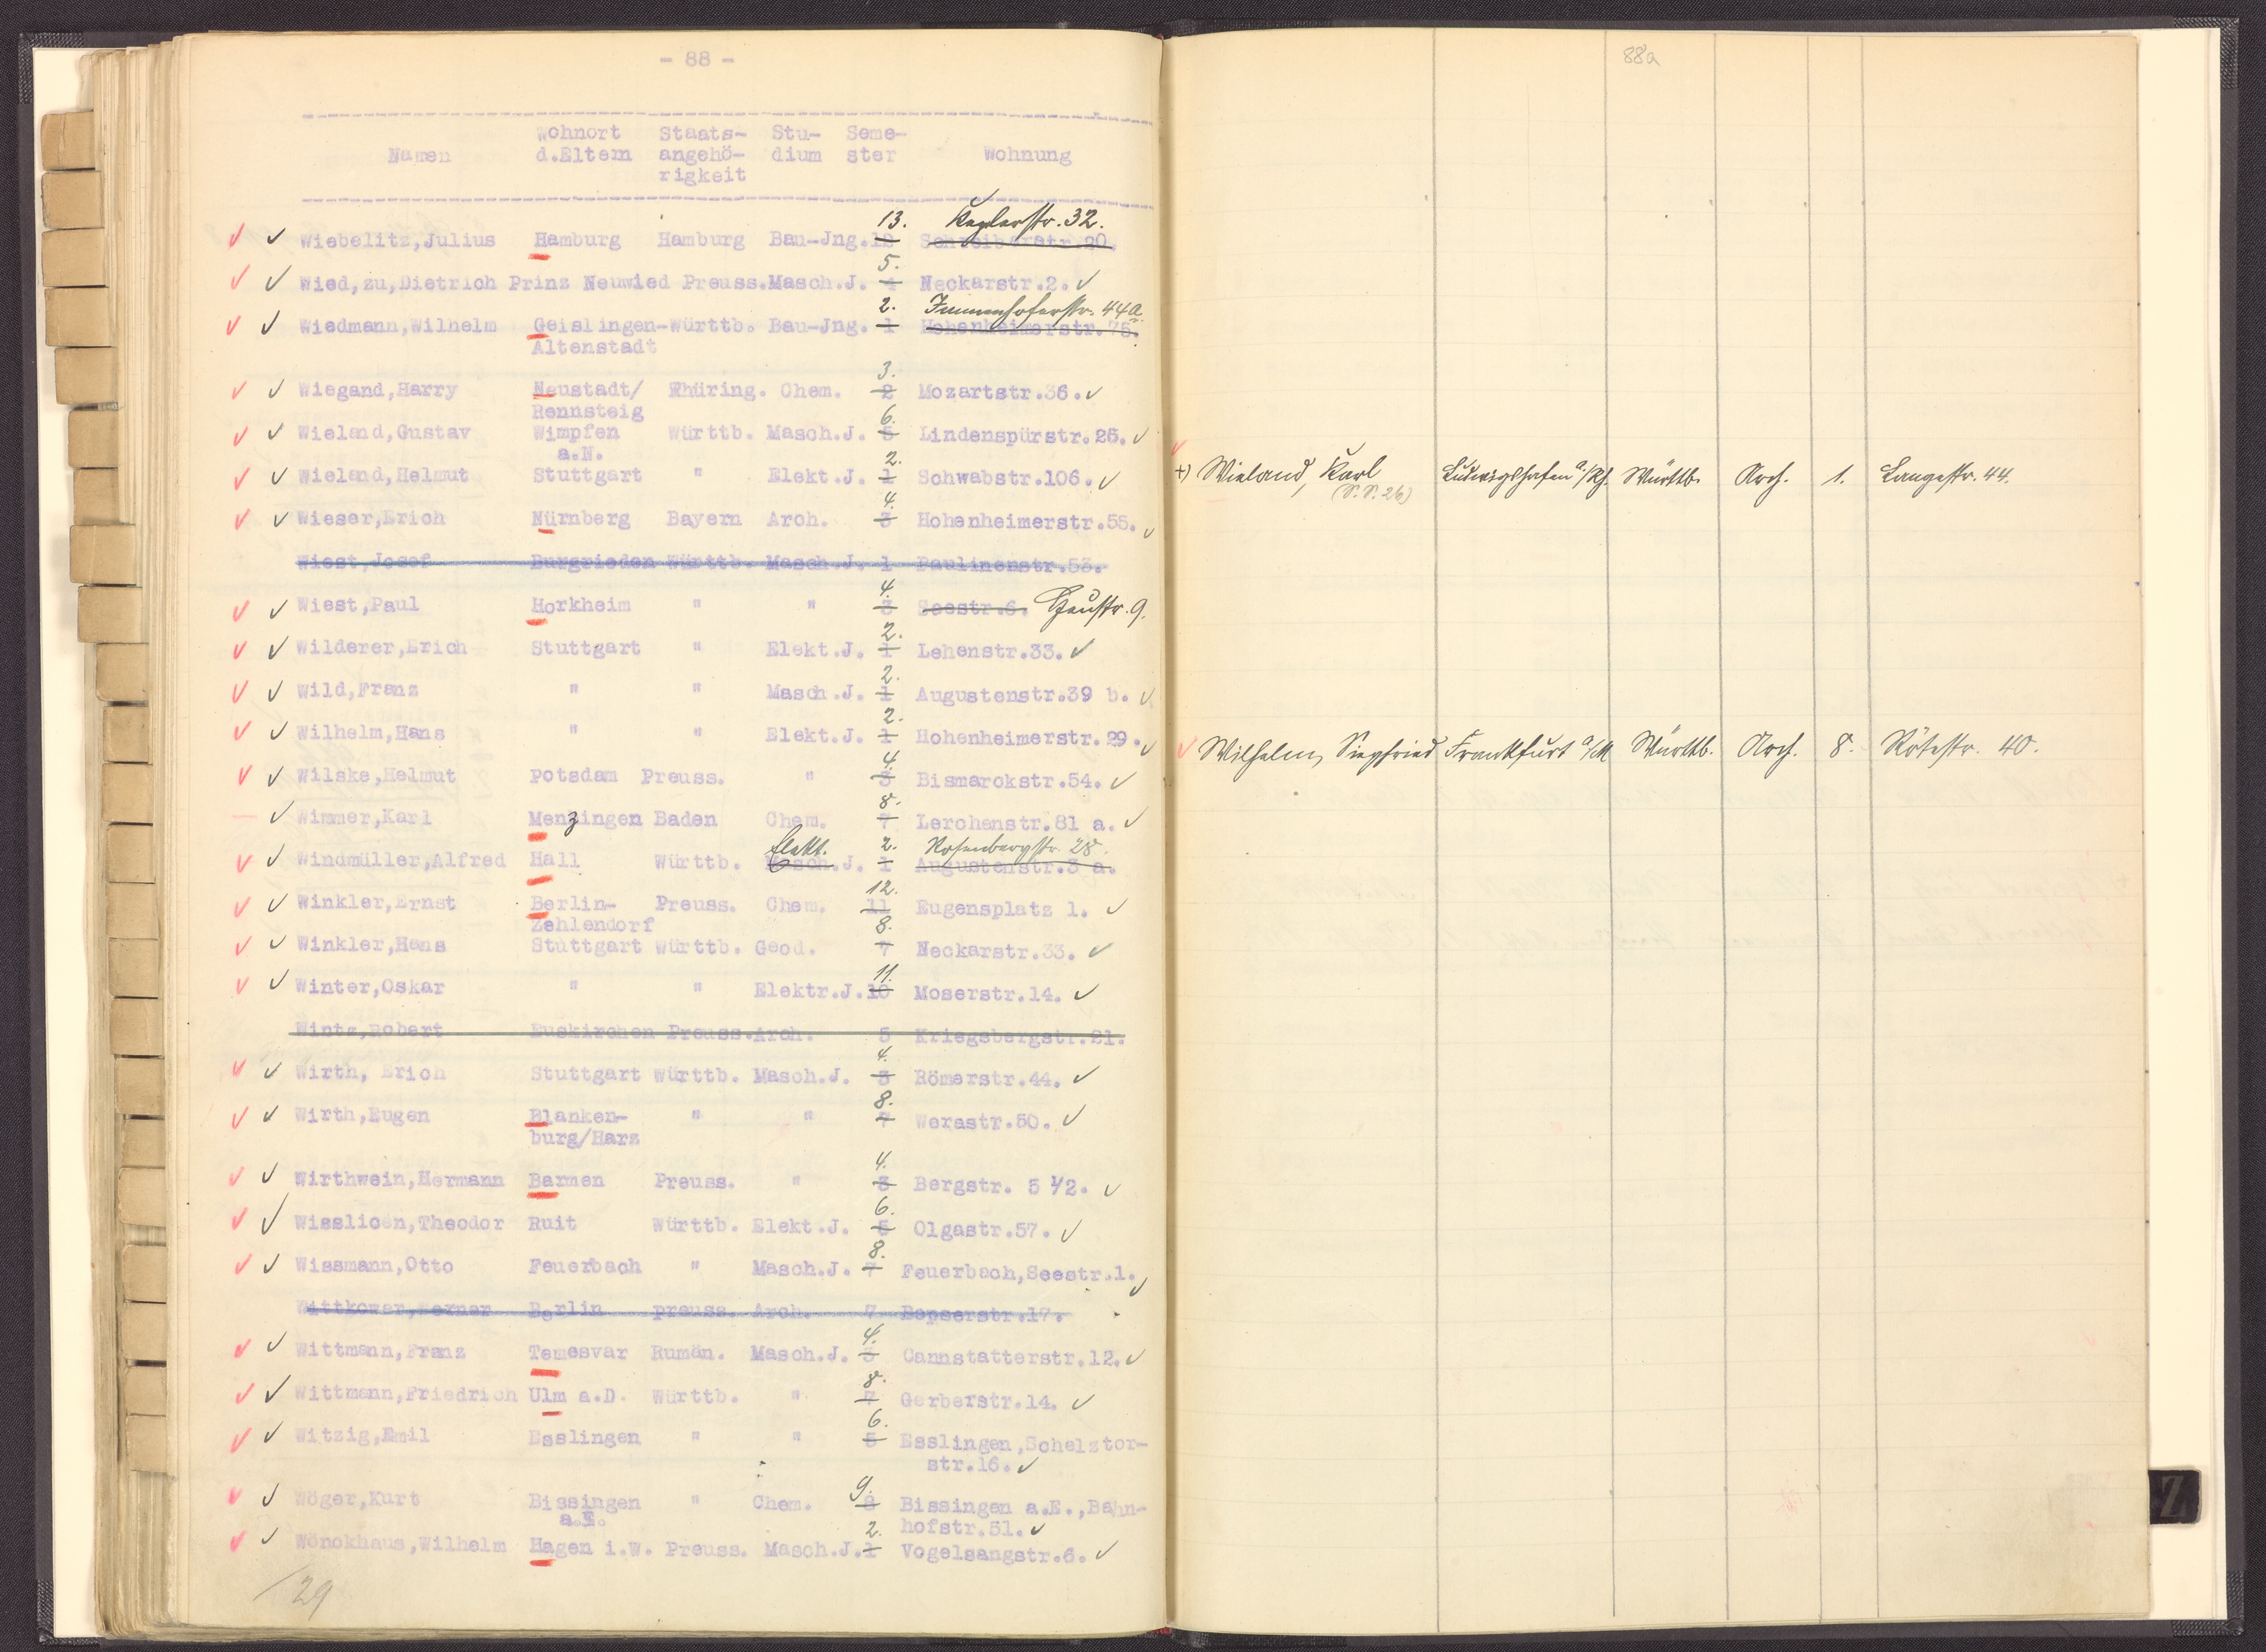 - 88 -
Namen Wohnort d.Eltern Staats- angehö- rigkeit Stu- dium Seme- ster Wohnung
13. Keplerstr. 32.
Wiebelitz,Julius Hamburg Hamburg Bau-Jng. 12 Schreiberstr.20.
5.
Wied,zu,Dietrich Prinz Neuwied Preuss.Masch.J. 4 Neckarstr.2.
2. Immenhoferstr. 44a.
Wiedmann,Wilhelm Geislingen- Württb. Bau-Jng. 1 Hohenheimerstr.75.
Altenstadt
3.
Wiegand,Harry Neustadt/ Thüring. Chem. 2 Mozartstr.36.
Rennsteig
6.
Wieland,Gustav Wimpfen Württb. Masch.J. 5 Lindenspürstr.25.
a.N.
2.
Wieland,Helmut Stuttgart " Elekt.J. 1 Schwabstr.106.
4.
Wieser,Erich Nürnberg Bayern Arch. 3 Hohenheimerstr.55.
Wiest,Josef Burgrieden Württb. Masch.J. 1 Paulinenstr.53.
4.
Wiest,Paul Horkheim " " 3 Seestr.6. Heustr. 9.
2.
Wilderer,Erich Stuttgart " Elekt.J. 1 Lehenstr.33.
2.
Wild,Franz " " Masch.J. 1 Augustenstr.39 b.
2.
Wilhelm,Hans " " Elekt.J. 1 Hohenheimerstr.29.
4.
Wilske,Helmut Potsdam Preuss. " 3 Bismarckstr.54.
8.
Wimmer,Karl Menzingen Baden Chem. 7 Lerchenstr.81 a.
Elekt. 2. Rosenbergstr. 28.
Windmüller,Alfred Hall Württb. Masch.J. 1 Augustenstr.3 a.
12.
Winkler,Ernst Berlin- Preuss. Chem. 11 Eugensplatz 1.
Zehlendorf
8.
Winkler,Hans Stuttgart Württb. Geod. 7 Neckarstr.33.
11.
Winter,Oskar " " Elektr.J. 10 Moserstr.14.
Wintz,Robert Euskirchen Preuss.Arch. 5 Kriegsbergstr.21.
4.
Wirth, Erich Stuttgart Württb. Masch.J. 3 Römerstr.44.
8.
Wirth,Eugen Blanken- " " 7 Werastr.50.
burg/Harz
4.
Wirthwein,Hermann Barmen Preuss. " 3 Bergstr. 5 1/2.
6.
Wisslicen,Theodor Ruit Württb. Elekt.J. 5 Olgastr.57.
8.
Wissmann,Otto Feuerbach " Masch.J. 7 Feuerbach,Seestr.1.
Wittkower,Werner Berlin preuss. Arch. 7 Bopserstr.17.
4.
Wittmann,Franz Temesvar Rumän. Masch.J. 3 Cannstatterstr.12.
8.
Wittmann,Friedrich Ulm a.D. Württb. " 7 Gerberstr.14.
6.
Witzig,Emil Esslingen " " 5 Esslingen,Schelztor-
str.16.
9.
Wöger,Kurt Bissingen " Chem. 8 Bissingen a.E.,Bahn-
a.E. hofstr.51.
2.
Wönckhaus,Wilhelm Hagen i.W. Preuss. Masch.J. 1 Vogelsangstr.6.
29
88a
+) Wieland, Karl Ludwigshafen a/Rh. Württb. Arch. 1. Langestr. 44.
(S.S. 26)
Wilhelm, Siegfried Frankfurt a/M Württb. Arch. 8. Rötestr. 40.
Z